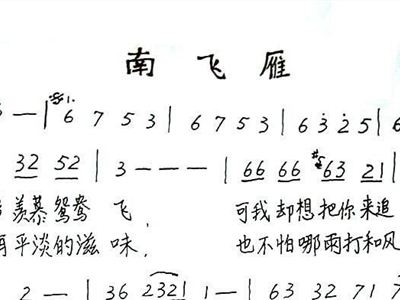 南飞雁
— | 6 7 5 3 | 6 7 5 3 | 6 3 2 5 | 6
32 52 | 3 — — — | 66 66 63 21 |
羡慕鸳鸯 飞, 可我却想把你来追
平淡的滋味, 也不怕哪雨打和风
2 — | 36 232 | 1 — | 63 32 71